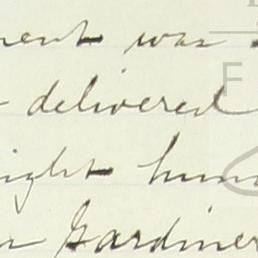 ment was
delivered
ight hund
Gardiner